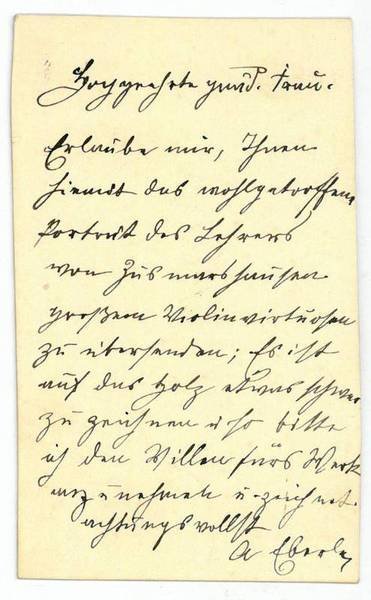 Hochgeehrte gnäd. Frau.
Erlaube mir, Ihnen
hiemit das wohlgetroffene
Portrait des Lehrers
von Zusmarshausen
großem Violinvirtuosen
zu übersenden; Es ist
auf das Holz etwas schwer
zu zeichnen u so bitte
ich den Willen fürs Werk
anzunehmen u. zeichnet
achtungsvollst
A Eberle